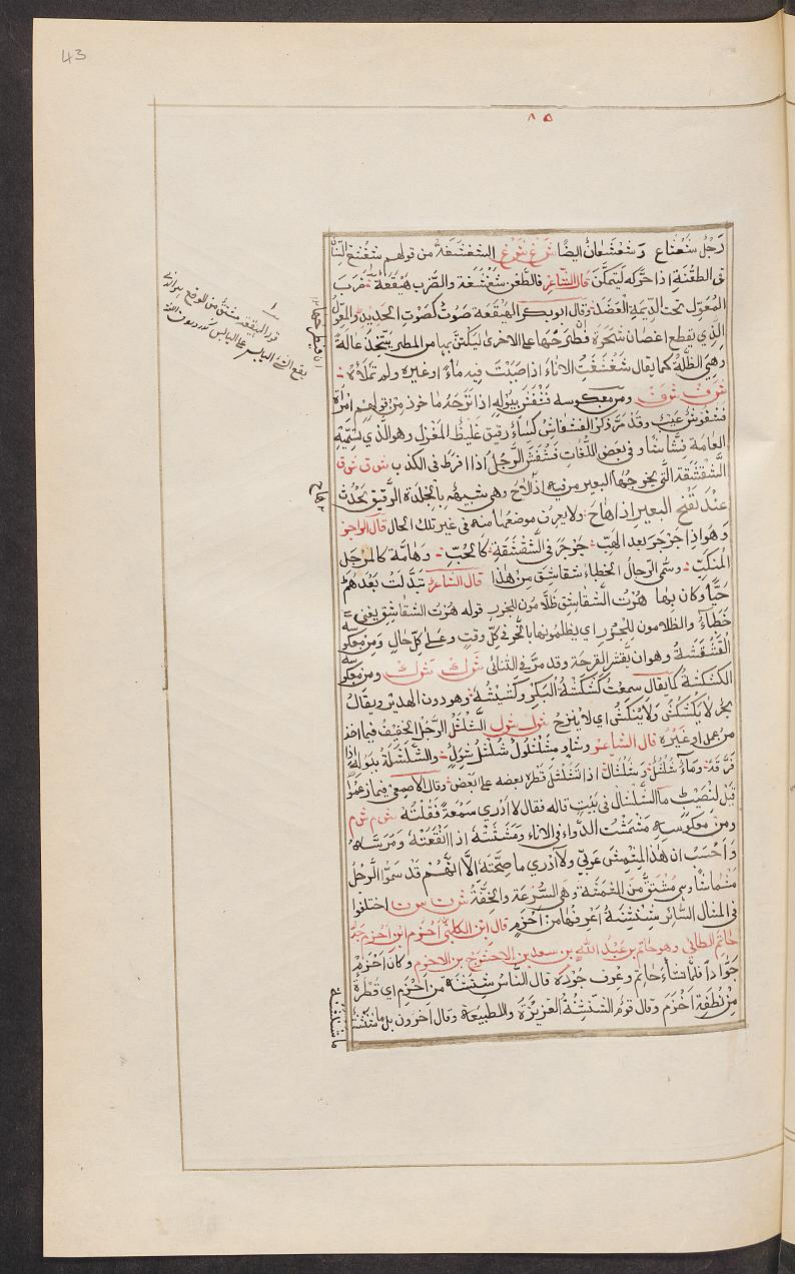 43
٨٥
رَجُلٌ شَعْشَاع وَشَعْشَعَانٌ ايضًا ش غ ش غ الشَغْشَغَة من قولهم شَغْشَغَ السِّنَان
فى الطَّعْنَة اذا حَرَّكه ليَتمكَّن قال الشاعر فالطَّعْن شَغْشَغَة والضَّرب هَيْقَعَة ضَرْبَ
المُعَوِّل تحت الدِّيمَةِ العَضَدَا وقال ابو بكر الهَيْقَعَة صَوْت كصَوْتِ الحديد والمُعَوِّل
الذى يقطع اغصان شَجَرة فَيطرَحُها على الاخرى ليَكتَنَّ بها من المطر يتّخذ عالة
وهى الظُلَّة كما يقال شَغْشَغْتُ الاناءَ اذا صَبَبْتَ فيه ماءً او غيره ولم تملأْه
ش ف ش ف ومن معكوسه فَشْفَشَ ببَوْلِه اذا نَزَحَهُ ماخوذ من قولهم امرأة
وقد مَرَّ ذكره الفَشْفاش كساءٌ رقيق غَليظ المَغْزَل وهو الذى تسمّيه
العامة فشّاشًا وفى بعض اللُّغات فَشْفَشَ الرَّجل اذا افرط فى الكذب ش ق ش ق
الشَّقْشَقَة الَّتى يخرجها البعير من فيه اذا هاج وهى شبيهة بالجلدة الرَّقيق تَحْدُث
عِنْد نَفْخ البعير اذا هاجَ ولا يعرف موضعها منه فى غير تلك الحال قال الراجز
وَهو اذا جَرْجَرَ بعد الهَبِّ جَرْجَرَ فى شِقْشِقَةٍ كالحُبِّ وَهامَّة كالمِرْجَل
المُنكَبِّ وسمّى الرّجال الخطباء شقاشق من هذا قال الشاعر تَبَدَّلَتْ بَعْدَهُم
حَيًّا وكان بها هُرْتُ الشقاشِق ظَلّامُون للجزر قوله هُرْت الشقاشق يعنى
خُطَباء والظلامون للجُزُر اى يظلمونها بالنحر فى كلّ وقت وعَلى كلّ حالٍ ومن معكوسه
القَشْقَشَةُ وهو ان يتقشر القرحَة وقد مرّ فى الثنائى ش ك ش ك ومن معكوسه
الكَشْكَشَة كما يقال سمعت كَشْكَشَةَ البَكْر وكَشيشَهُ وهو دون الهدير ويقال
بحرٌ لا يُكَشْكَش ولا يُنْكَش اى لا ينزح ش ل ش ل الشُّلْشُل الرَّجل الخفيف فيما اخذ
من عمل او غَيْره قال الشاعر وشاوٍ مِشَلّ شَلُولٌ شُلْشُلٌ شَوِلُ والشَّلْشَلة ببَوْله اذا
فَرَّقَه وماءٌ شُلْشُلٌ وشَلْشالٌ اذا تَشَلْشَلَ قطره بعضه على البعض وقال الاصمعى فيما زعموا
قيل لنصيب ما الشَّلْشال فى بَيْتٍ قاله فقال لا ادرى سَمِعْته فقلته ش م ش م
ومن معكوسه مَشْمَشْتُ الدَّواء فى الاناء ومَشَشْتُه اذا انْقَعتَه ومَرَستَهُ
وَاحْسَبُ ان هذا المِشْمِش عربىّ ولا ادرى ما صحّتَه الّا انَّهُم قد سَمَّوا الرَّجلَ
مشماشًا وهى مُشتَقٌّ من المَشْمَشَة وهى السُّرْعَة والخِفَّة ش ن ش ن اختلفوا
فى المثال السائر شِنْشِنَةٌ اعرفها من اَخْزَمِ قال ابن الكلبى اخزم ابن اخزم جدّ
حَاتم الطائى وهو حاتم بن عَبْد الله بن سعد بن الحشرج بن الاخزم وكان اَخْزَمُ
جَوَّادًا فلمّا نشاءَ حاتم وعُرِف جُودُه قال النَّاس شِنْشِنَة من اَخْزَم اى قَطْرَةٌ
مِنْ نُطفَة اخزم وقال قوم الشّنْشِنَةُ الغريزَة والطبيعَة وقال آخرون بل
هاج
الهيقعة مشتق من الوقع